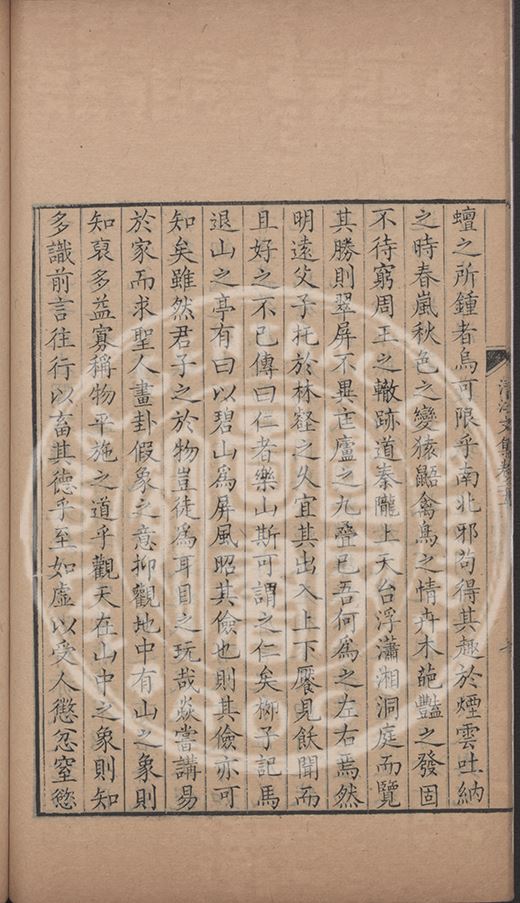 蟺之所鍾者烏可限乎南北邪苟得其趣於煙雲吐納
之時春嵐秋色之變猿鼯禽鳥之情卉木葩豔之發固
不待窮周王之轍跡道秦隴上天台浮瀟湘洞庭而覽
其勝則翠屏不異匡廬之九疊已吾何為之左右焉然
明遠父子托於林壑之久宜其出入上下饜見飫聞而
且好之不已傳曰仁者樂山斯可謂之仁矣柳子記馬
退山之亭有曰以碧山為屏風昭其儉也則其儉亦可
知矣雖然君子之於物豈徒為耳目之玩哉焱嘗講易
於家而求聖人畫卦假象之意抑觀地中有山之象則
知裒多益寡稱物平施之道乎觀天在山中之象則知
多識前言往行以畜其德乎至如虛以受人懲忿窒慾
清江文集卷